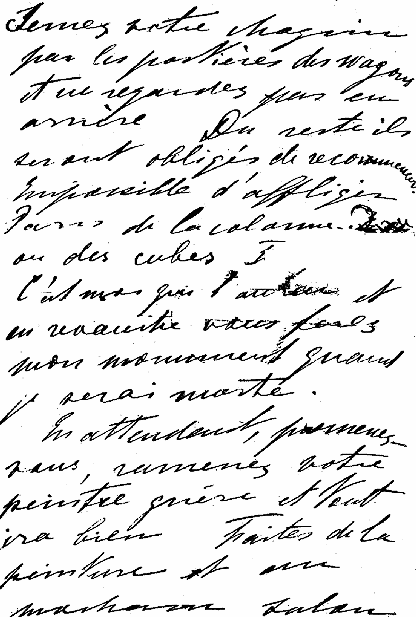 Semez votre chagrin
par les portières des wagons
et ne regardez pas en
arrière Du reste ils
seront obligés de recommencer.
Impossible d'affliger
Paris de la colonne.
ou des cubes I
C'est moi qui l' et
en revanche vous ferez
mon monument quand
je serai morte.
En attendant, promenez
vous, ramenez votre
peintre guéri et tout
ira bien Faites de la
peinture et au
prochain salon